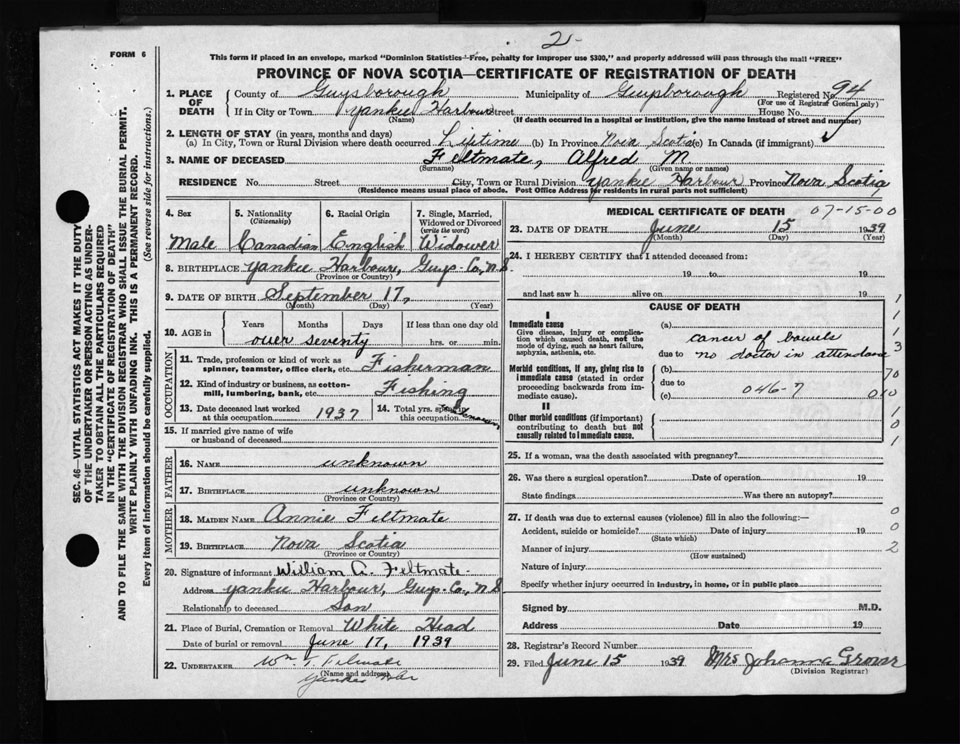 2-
FORM 6
This form if placed in an envelope, marked "Dominion Statistics—Free, penalty for improper use $300," and properly addressed will pass through the mail "FREE"
PROVINCE OF NOVA SCOTIA—CERTIFICATE OF REGISTRATION OF DEATH
1. PLACE OF DEATH County of Guysborough Municipality of Guysborough Registered No. 94
(For use of Registrar General only)
If in City or Town Yankie Harbour Street House No.
(Name) (If death occurred in a hospital or institution, give the name instead of street and number)
2. LENGTH OF STAY (in years, months and days)
(a) In City, Town or Rural Division where death occurred Lifetime (b) In Province Nova Scotia (c) In Canada (if immigrant)
3. NAME OF DECEASED Feltmate, Alfred M.
(Surname) (Given name or names)
RESIDENCE No. Street City, Town or Rural Division Yankie Harbour Province Nova Scotia
(Residence means usual place of abode. Post Office Address for residents in rural parts not sufficient)
4. Sex 5. Nationality (Citizenship) 6. Racial Origin 7. Single, Married, Widowed or Divorced (write the word)
Male Canadian English Widower
8. BIRTHPLACE Yankie Harbour, Guys. Co, N.S.
(Province or Country)
9. DATE OF BIRTH September 17,
(Month) (Day) (Year)
10. AGE in Years Months Days If less than one day old
over seventy hrs. or min.
OCCUPATION
11. Trade, profession or kind of work as spinner, teamster, office clerk, etc. Fisherman
12. Kind of industry or business, as cotton-mill, lumbering, bank, etc. Fishing
13. Date deceased last worked at this occupation 1937 14. Total yrs. spent in this occupation
15. If married give name of wife or husband of deceased
FATHER
16. NAME unknown
17. BIRTHPLACE unknown
(Province or Country)
MOTHER
18. MAIDEN NAME Annie Feltmate
19. BIRTHPLACE Nova Scotia
(Province or Country)
20. Signature of informant William C. Feltmate
Address Yankie Harbour, Guys. Co., N.S.
Relationship to deceased Son
21. Place of Burial, Cremation or Removal White Head
Date of burial or removal June 17, 1939
22. UNDERTAKER Wm T.
(Name and address)
MEDICAL CERTIFICATE OF DEATH 07-15-00
23. DATE OF DEATH June 15 1939
(Month) (Day) (Year)
24. I HEREBY CERTIFY that I attended deceased from:
19 to 19
and last saw h alive on 19
CAUSE OF DEATH
I
Immediate cause
Give disease, injury or complication which caused death, not the mode of dying, such as heart failure, asphyxia, asthenia, etc.
(a) cancer of bowels
due to no doctor in attendance
Morbid conditions, if any, giving rise to immediate cause (stated in order proceeding backwards from immediate cause).
(b)
due to 046-7
(c)
II
Other morbid conditions (if important) contributing to death but not causally related to immediate cause.
1
1
1
3
70
0 1 0
1
0
1
25. If a woman, was the death associated with pregnancy?
26. Was there a surgical operation? Date of operation 19
State findings Was there an autopsy?
27. If death was due to external causes (violence) fill in also the following:—
Accident, suicide or homicide? Date of injury 19
(State which)
Manner of injury
(How sustained)
Nature of injury
Specify whether injury occurred in industry, in home, or in public place
0
0
2
Signed by M.D.
Address Date 19
28. Registrar's Record Number
29. Filed June 15 1939 Mrs Johanna
(Division Registrar)
SEC. 46—VITAL STATISTICS ACT MAKES IT THE DUTY
OF THE UNDERTAKER OR PERSON ACTING AS UNDER-
TAKER TO OBTAIN ALL THE PARTICULARS REQUIRED
IN THE "CERTIFICATE OF REGISTRATION OF DEATH"
AND TO FILE THE SAME WITH THE DIVISION REGISTRAR WHO SHALL ISSUE THE BURIAL PERMIT.
WRITE PLAINLY WITH UNFADING INK. THIS IS A PERMANENT RECORD.
Every item of information should be carefully supplied. (See reverse side for instructions.)